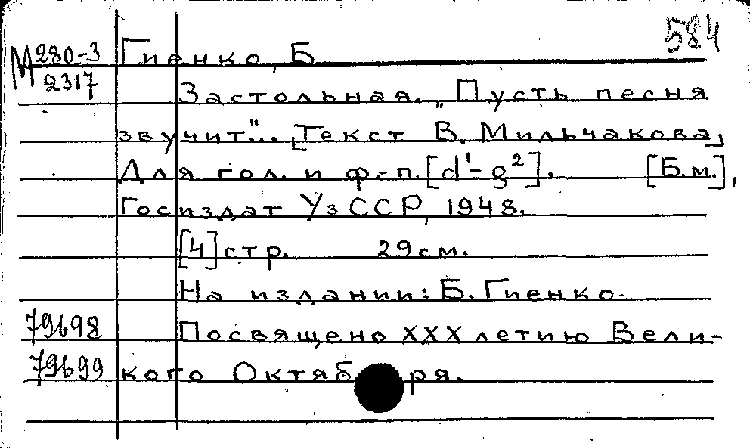 584
М 280-3
2317
Гиенко, Б.
Застольная. „Пусть песня
звучит"... [Текст В. Мильчакова]
Для гол. и ф.-п. [d¹-g²]. [Б.м.],
Госиздат УзССР, 1948.
[4] стр. 29 см.
На издании: Б. Гиенко.
79698 Посвящено XXX летию Вели-
79699 кого Октября.